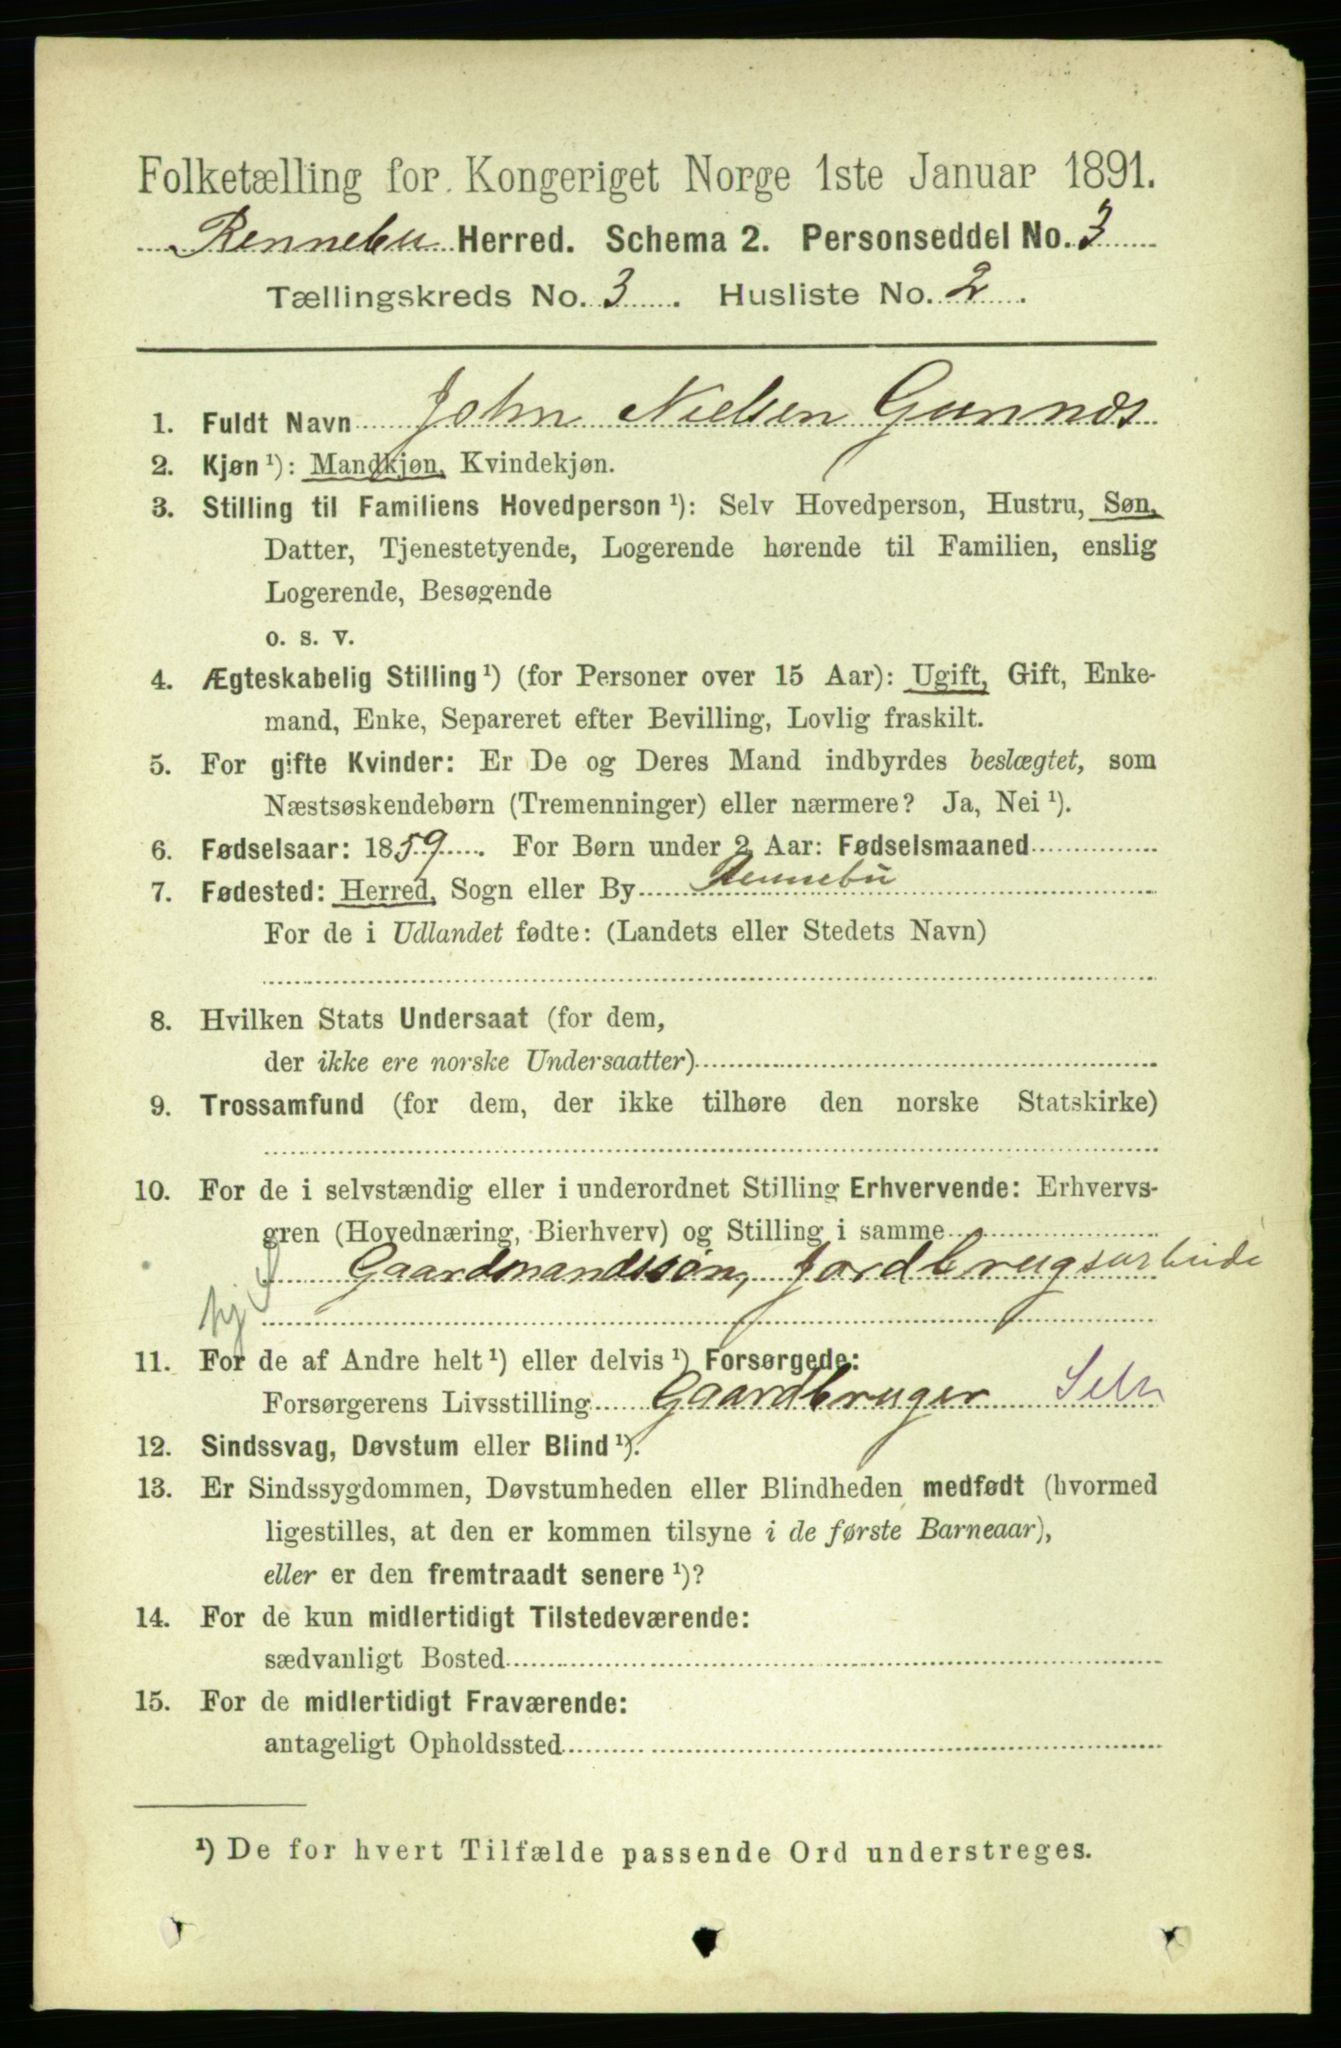 Folketælling for Kongeriget Norge 1ste Januar 1891.
Rennebu Herred. Schema 2. Personseddel No. 3
Tællingskreds No. 3. Husliste No. 2.
1. Fuldt Navn John Nielsen Gunnes
2. Kjøn ¹): Mandkjøn, Kvindekjøn.
3. Stilling til Familiens Hovedperson ¹): Selv Hovedperson, Hustru, Søn,
Datter, Tjenestetyende, Logerende hørende til Familien, enslig
Logerende, Besøgende
o. s. v.
4. Ægteskabelig Stilling ¹) (for Personer over 15 Aar): Ugift, Gift, Enke-
mand, Enke, Separeret efter Bevilling, Lovlig fraskilt.
5. For gifte Kvinder: Er De og Deres Mand indbyrdes beslægtet, som
Næstsøskendebørn (Tremenninger) eller nærmere? Ja, Nei ¹).
6. Fødselsaar: 1859. For Børn under 2 Aar: Fødselsmaaned
7. Fødested: Herred, Sogn eller By Rennebu
For de i Udlandet fødte: (Landets eller Stedets Navn)
8. Hvilken Stats Undersaat (for dem,
der ikke ere norske Undersaatter)
9. Trossamfund (for dem, der ikke tilhøre den norske Statskirke)
10. For de i selvstændig eller i underordnet Stilling Erhvervende: Erhvervs-
gren (Hovednæring, Bierhverv) og Stilling i samme
Gaardmandssøn, Jordbrugsarbeide
11. For de af Andre helt ¹) eller delvis ¹) Forsørgede:
Forsørgerens Livsstilling Gaardbruger Selv
12. Sindssvag, Døvstum eller Blind ¹).
13. Er Sindssygdommen, Døvstumheden eller Blindheden medfødt (hvormed
ligestilles, at den er kommen tilsyne i de første Barneaar),
eller er den fremtraadt senere ¹)?
14. For de kun midlertidigt Tilstedeværende:
sædvanligt Bosted
15. For de midlertidigt Fraværende:
antageligt Opholdssted
¹) De for hvert Tilfælde passende Ord understreges.